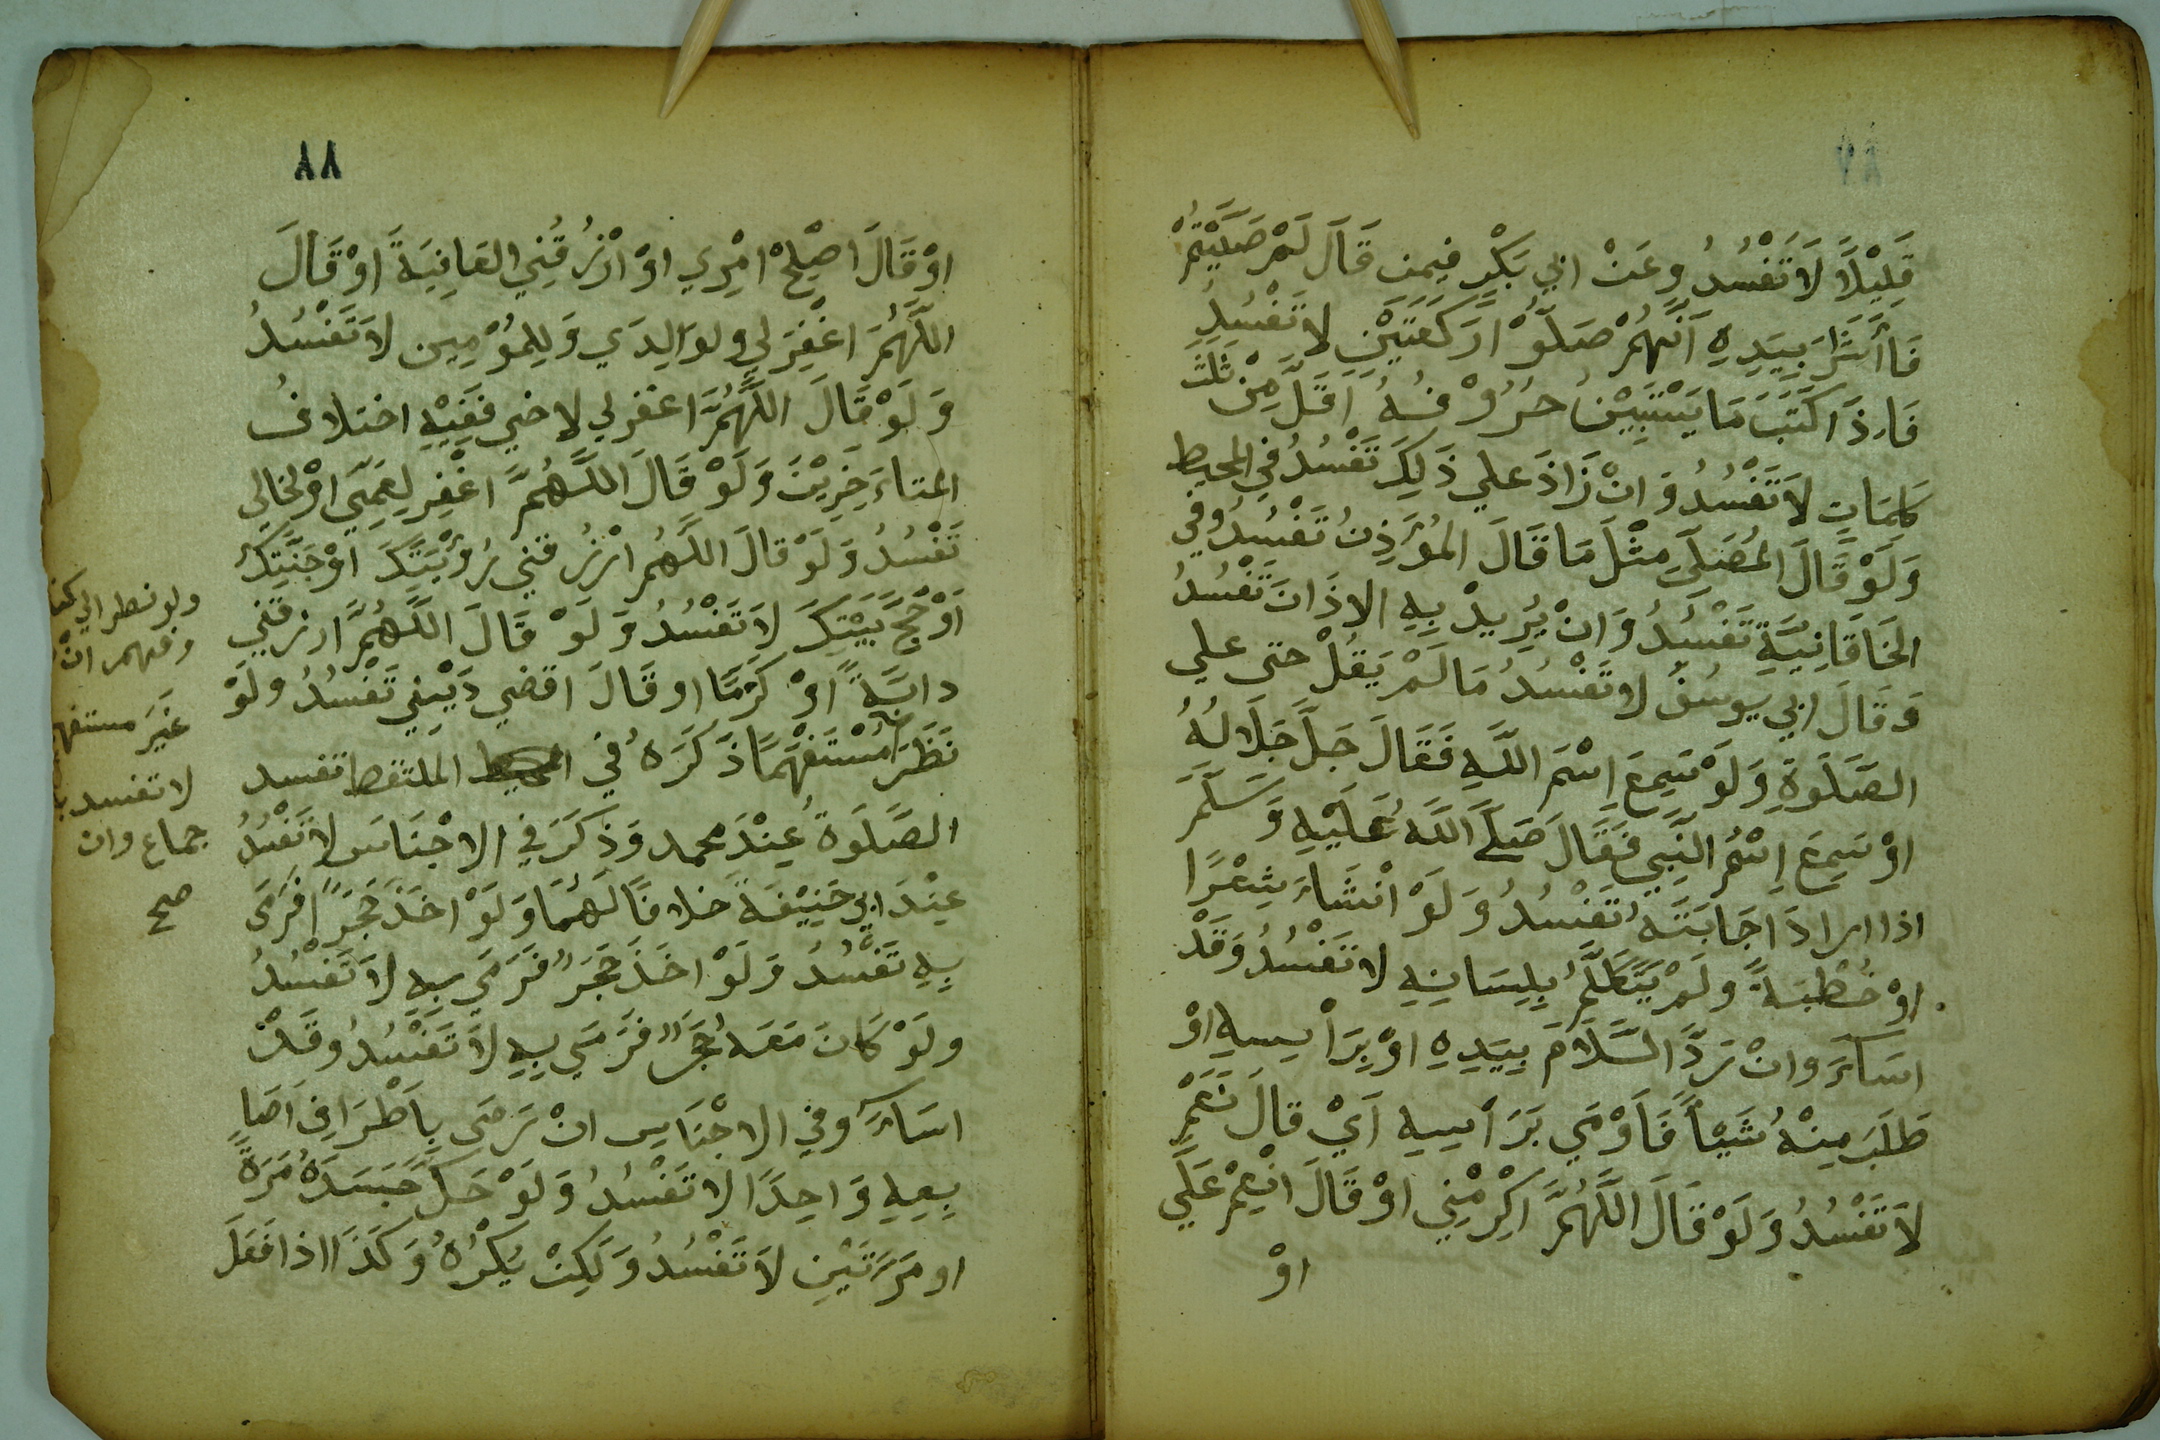 قَلِيْلًا لَا تَفْسُدُ وعَنْ ابي بَكْرٍ فِيمن قَالَ لَمْ صَلَيْتُمْ
فَاأَشَارَ بِيَدِهِ اَنَّهُمْ صَلَّوْا رَكَعَتَيْنِ لا تَفْسُدِ
فَاِذَا كَتَبَ مَا يَسْتَبِيْنُ حُرُوْفُهُ اَقَلَّ مِنْ ثَلَثَ
كَلِمَاتٍ لاَ تَفْسُدُ وَانْ زَاذَ علي ذَلِكَ تَفْسُدُ فِي المحيط
وَلَوْ قَالَ المُصَلَيِ مِثْلَ مَا قَالَ المُؤَذِنُ تَفْسُدُ وفي
الخَاقَانِيَّةِ تَفْسُدُ وَانْ يُرِيدْ بِهِ الاذَانَ تَفْسُدُ
وَقَالَ ابي يوسُفُ لا تَفْسُدُ مَا لَمْ يَقُلْ حتى علي
الصَّلَوةِ وَلَوْ سَمِعَ اِسْمَ اللَّهِ فَقَالَ جَلَّ جَلَالُهُ
اوْ سَمِعَ اِسْمُ النَّبِي فَقَالَ صَلَّ اللَّهُ عَلَيْهِ وَسَلَّمَ
اذا ارادَ اجَابَتَهُ تَفْسُدُ وَلَوْ انْشَاءَ شِعْرًا
اوْ خُطْبَةً ولَمْ يَتَكَلَّمْ بِلِسَانِهِ لا تَفْسُدُ وَقَدْ
اسَاءَ وانْ رَدَّ السَّلامَ بِيَدِهِ اوْ بِرَأْسِهِ اوْ
طَلَبَ مِنْهُ شَيْأً فَاَوْمَي بَرَاْسِهِ اَيْ قالَ نَعَمْ
لاَ تَفْسُدُ وَلَوْ قَالَ اللَّهُمَّ اكْرِمْنِي اوْ قَالَ انْعِمْ عَلَي
اوْ
٨٨
اوْ قَالَ اصْلِحْ امْرِي اوْ ارْزُقْنِي العَافِيَةَ اوْ قَالَ
اللَّهُمَ اغْفِرْ لِي ولوَالِدَي وَلِلمُؤْمِنِين لاَ تَفْسُدُ
وَلَوْ قَالَ اللَّهُمَّ اغفرلي لاخي فَفِيْهِ اختلافُ
المتاءَخِرِيْنَ وَلَوْ قَالَ اللَّهُمَّ اغْفِر لِعَمِّي اوْ لخالِي
تَفْسُدُ وَلَوْ قالَ اللَّهُم ارْزُقني رُؤْيَتَكَ اوْ جَنَّتِكَ
اَوْ حَجَّ بَيْتِكَ لاَ تَفْسُدُ وَلَوْ قَالَ اللَّهُمَّ ارزقني
دابَّةً اوْ كَرْمًا او قَالَ اقضي دَيْنِي تَفْسُدُ ولَوْ
نَظَرَ مُسْتَفْهِمًا ذَكَرَهُ في المحيط الملتقط تفسد
الصَّلَوةُ عِنْدَ محمد وَذِكَرَ فِي الاجْنَاسِ لا تَفْسُدُ
عِنْدَ ابي حَنِيْفَةَ خلافًا لَهُمَا وَلَوْ اخَذَ حَجَرًا فَرَمَى
بِهِ تَفْسُدُ وَلَوْ اخَذَ حَجَرًا فَرَمَي بِهِ لاَ تَفْسُدُ
ولَوْ كَانَ مَعَهُ حَجَرًا فَرَمَي بِهِ لاَ تَفْسُدُ وقَدْ
اسَاءَ وفِي الاجْنَاسِ انْ رَمَى بِاَطْرَافِ اَصَا
بِعِهِ وَاحِدًا لا تَفْسُدُ وَلَوْ حَكَّ جَسَدَهُ مَرَةً
او مَرَّتَيْنِ لاَ تَفْسُدُ وَلَكِنْ يُكْرَهُ وَكَذَا اذا فَعَلَ
ولو نظر الي
وفهم انْ
غَيَر مستفهم
لا تفسد
جماع وان
صح